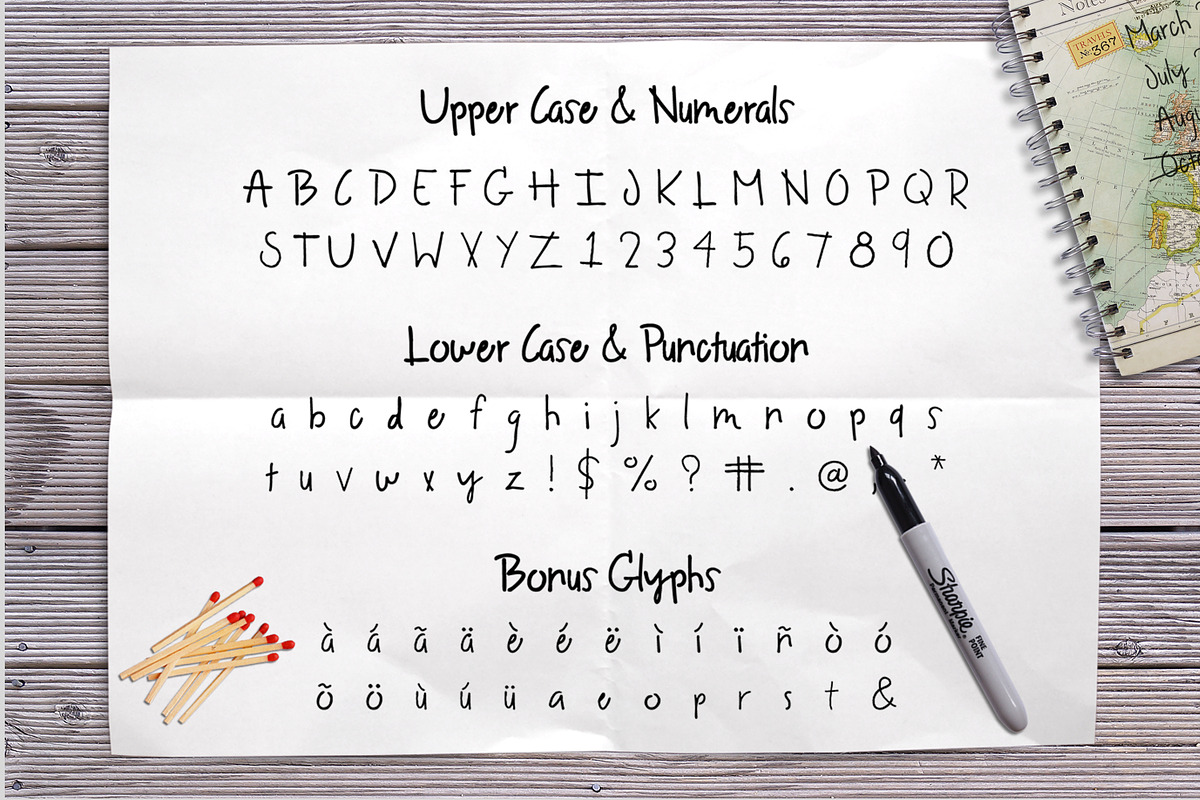 Upper Case & Numerals
A B C D E F G H I J K L M N O P Q R
S T U V W X Y Z 1 2 3 4 5 6 7 8 9 0
Lower Case & Punctuation
a b c d e f g h i j k l m n o p q s
t u v w x y z ! $ % ? # . @ *
Bonus Glyphs
à á ã ä è é ë ì í ï ñ ò ó
õ ö ù ú ü a e o p r s t &
Sharpie
FINE
POINT
Notes
TRAVELS
No. 367
March
July